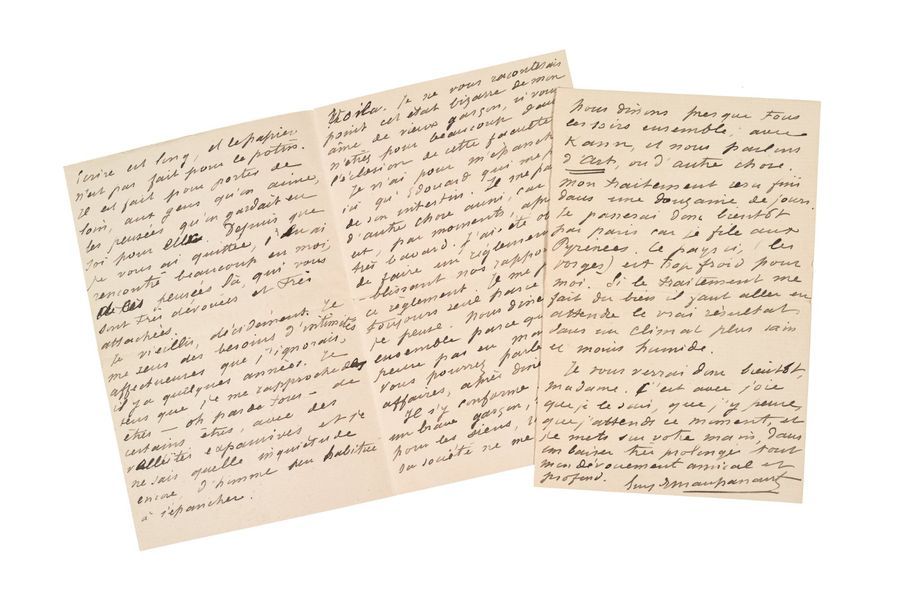 écrire est long, et le papier
n'est pas fait pour le potin.
Il est fait pour porter de
loin, aux gens qu'on aime,
les pensées qu'on gardait en
soi pour elle. Depuis que
je vous ai quittée, j'en ai
rencontré beaucoup en moi
de ces pensées là, qui vous
sont très dévouées et très
attachées.
Je vieillis, décidément. Je
me sens des besoins d'intimités
affectueuses que j'ignorais,
il y a quelques années. Je
sens que je me rapproche des
êtres — oh pas de tous — de
certains êtres, avec des
velléités expansives et je
ne sais quelle inquiétude
encore, d'homme peu habitué
à s'épancher.
Voila. Je ne vous raconterais
point cet état bizarre de mon
âme de vieux garçon, si vous
n'étiez pour beaucoup dans
l'éclosion de cette faculté
Je n'ai pour m'épancher
ici qu'Edouard qui me p
de son intestin. Il me pa
d'autre chose aussi, car
est, par moments, ap
très bavard. J'ai été ob
de faire un règlement
blissant nos rappo
ce règlement. Je me p
toujours seul parce
je pense. Nous dîne
ensemble parce qu
pense pas en man
vous pourrez parle
affaires, après dîne
Il s'y conforme
un brave garçon,
pour les siens,
sa société ne me
Nous dînons presque tous
les soirs ensemble, avec
Kann, et nous parlons
d'Art, ou d'autre chose.
Mon traitement sera fini
dans une douzaine de jours.
Je passerai donc bientôt
par Paris car je file aux
Pyrénées. Ce pays ci (les
Vosges) est trop froid pour
moi. Si le traitement me
fait du bien il faut aller en
attendre le vrai résultat
dans un climat plus sain
et moins humide.
Je vous verrai donc bientôt,
madame. C'est avec joie
que je le sais, que j'y pense,
que j'attends ce moment, et
je mets sur votre main, dans
un baiser très prolongé tout
mon dévouement amical et
profond.
Guy de Maupassant